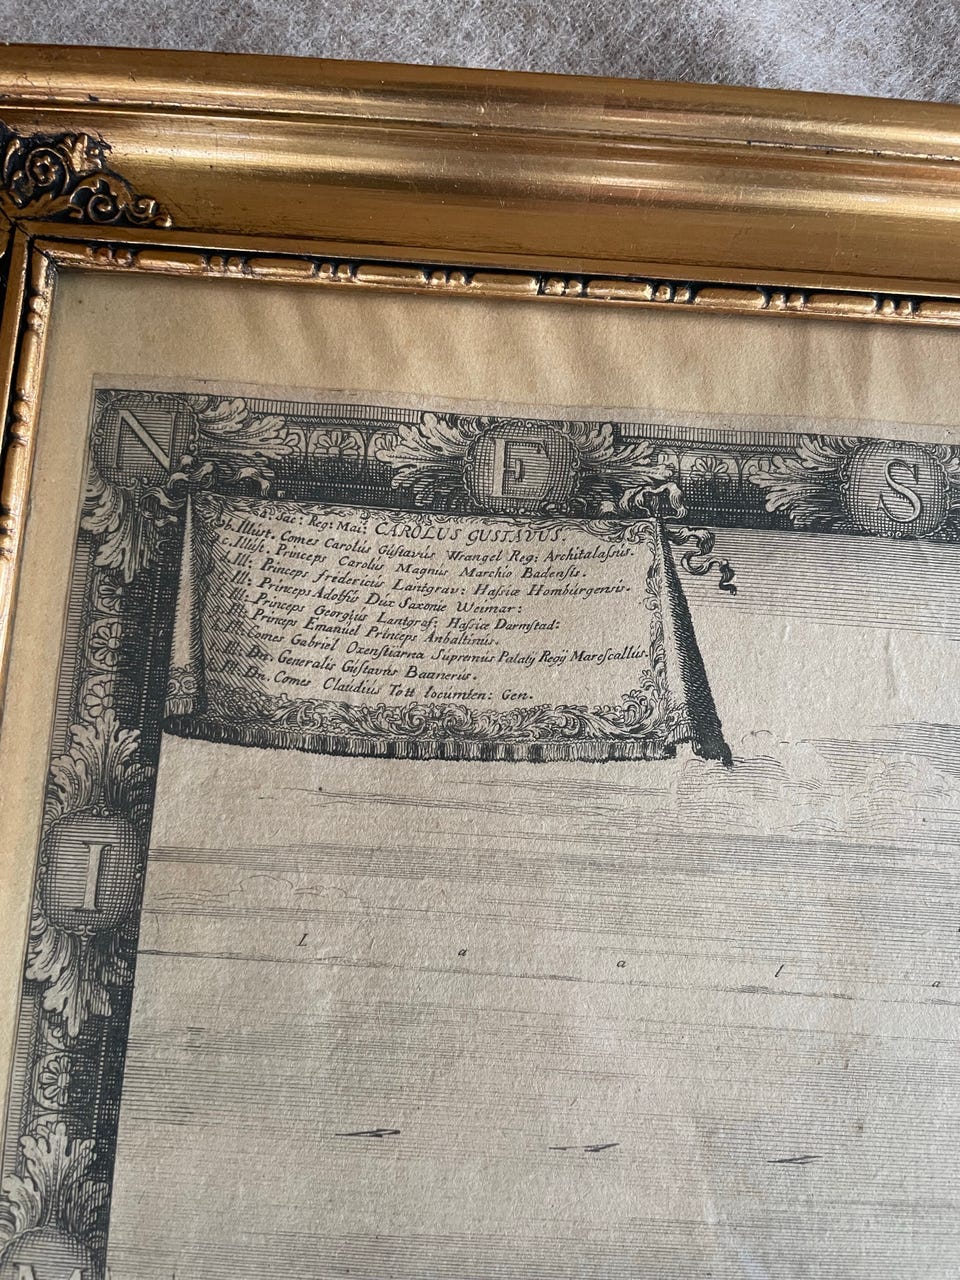 N E S
a. Sac: Reg: Mai: CAROLUS GUSTAVUS.
b. Illust. Comes Carolus Gustavus Wrangel Reg: Architalassus.
c. Illust. Princeps Carolus Magnus Marchio Badensis.
Ill: Princeps fredericus Lantgrav: Hassiæ Homburgensis.
Ill: Princeps Adolfus Dux Saxonie Weimar:
Ill: Princeps Georgius Lantgraf: Hassiæ Darmstad:
Ill: Princeps Emanuel Princeps Anhaltinus.
Comes Gabriel Oxenstiarna Supremus Palatÿ Regÿ Marescallus.
Ill: Dn. Generalis Gustavus Baanerus.
Ill: Dn. Comes Claudius Tott locumten: Gen.
I
L a a l a
M